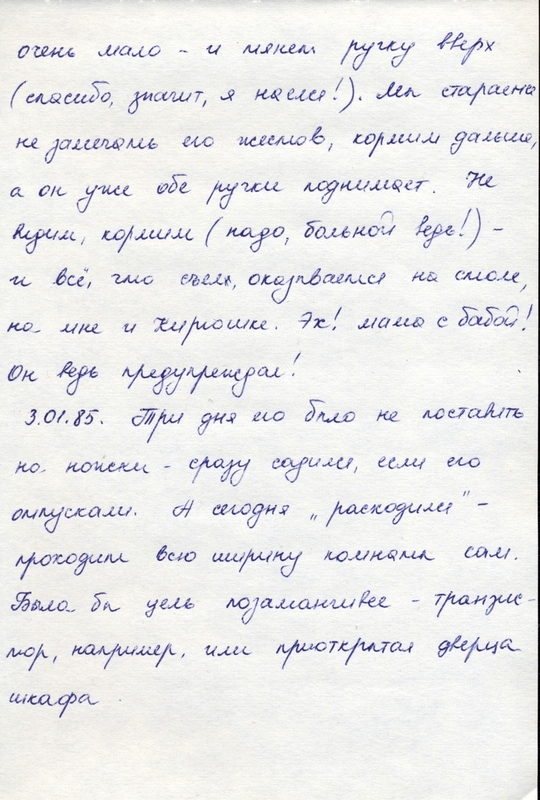 очень мало - и тянет ручку вверх
(спасибо, значит, я наелся!). Мы стараемся
не замечать его жестов, кормим дальше,
а он уже обе ручки поднимает. Не
видим, кормим (надо, больной ведь!) -
и всё, что съел, оказывается на столе,
на мне и Кирюшке. Эх! мама с бабой!
Он ведь предупреждал!
3.01.85. Три дня его было не поставить
на ножки - сразу садился, если его
отпускали. А сегодня „расходился" -
проходит всю ширину комнаты сам.
Была бы цель позаманчивее - транзис-
тор, например, или приоткрытая дверца
шкафа